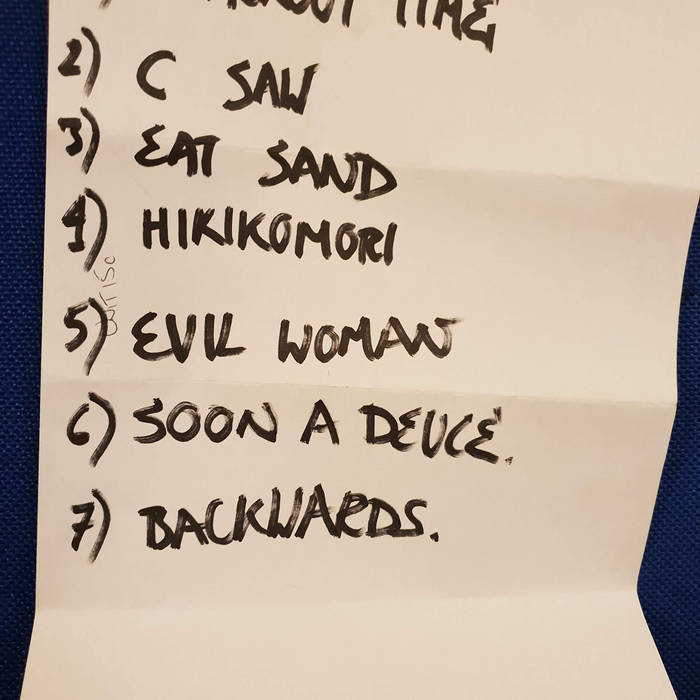 TIME
2) C SAW
3) EAT SAND
4) HIKIKOMORI
5) EVIL WOMAN
6) SOON A DEUCE.
7) BACKWARDS.